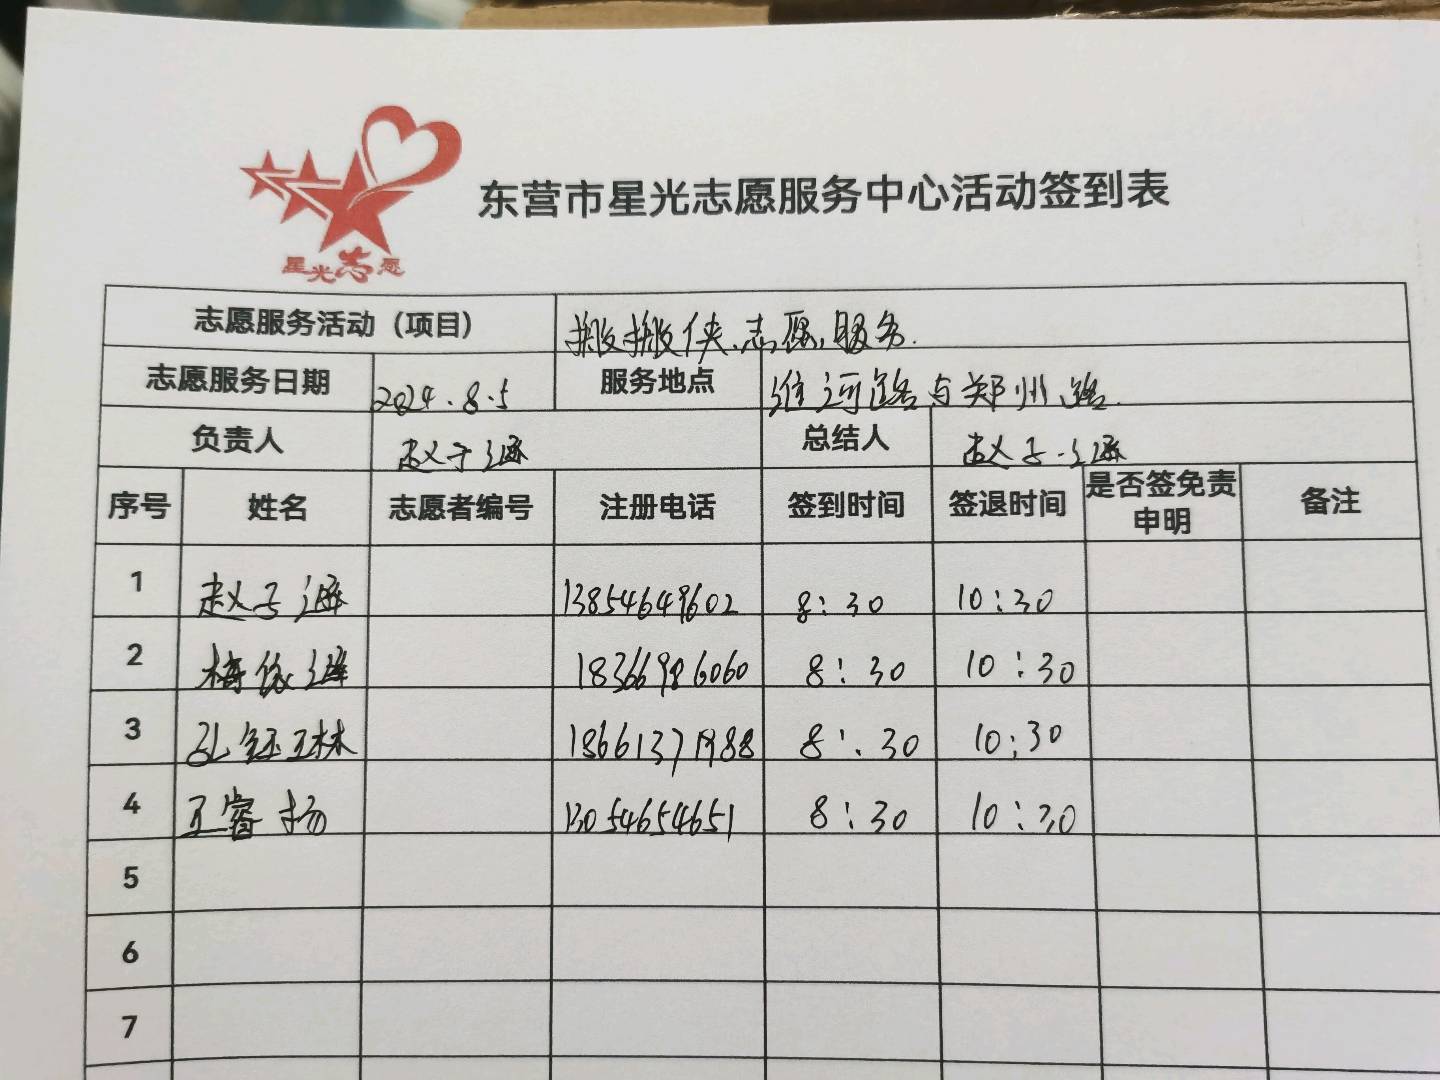 星光志愿
东营市星光志愿服务中心活动签到表
志愿服务活动（项目） 搬搬侠志愿服务.
志愿服务日期 2024.8.5 服务地点 淮河路与郑州路.
负责人 赵子涵 总结人 赵子涵
序号 姓名 志愿者编号 注册电话 签到时间 签退时间 是否签免责申明 备注
1 赵子涵 13854649602 8:30 10:30
2 梅依涵 18366986060 8:30 10:30
3 孔钰琳 8:30 10:30
4 王睿扬 13054654651 8:30 10:30
5
6
7